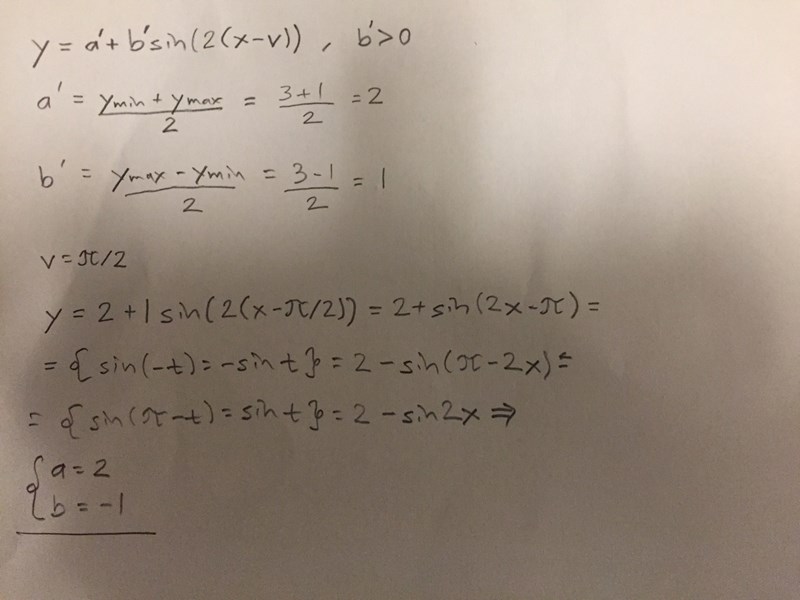 y = a' + b' sin(2(x-v)) , b' > 0
a' = (ymin + ymax)/2 = (3+1)/2 = 2
b' = (ymax - ymin)/2 = (3-1)/2 = 1
v = π/2
y = 2 + 1 sin(2(x-π/2)) = 2 + sin(2x-π) =
= { sin(-t) = -sin t } = 2 - sin(π-2x) =
= { sin(π-t) = sin t } = 2 - sin2x ⇒
{ a = 2
b = -1